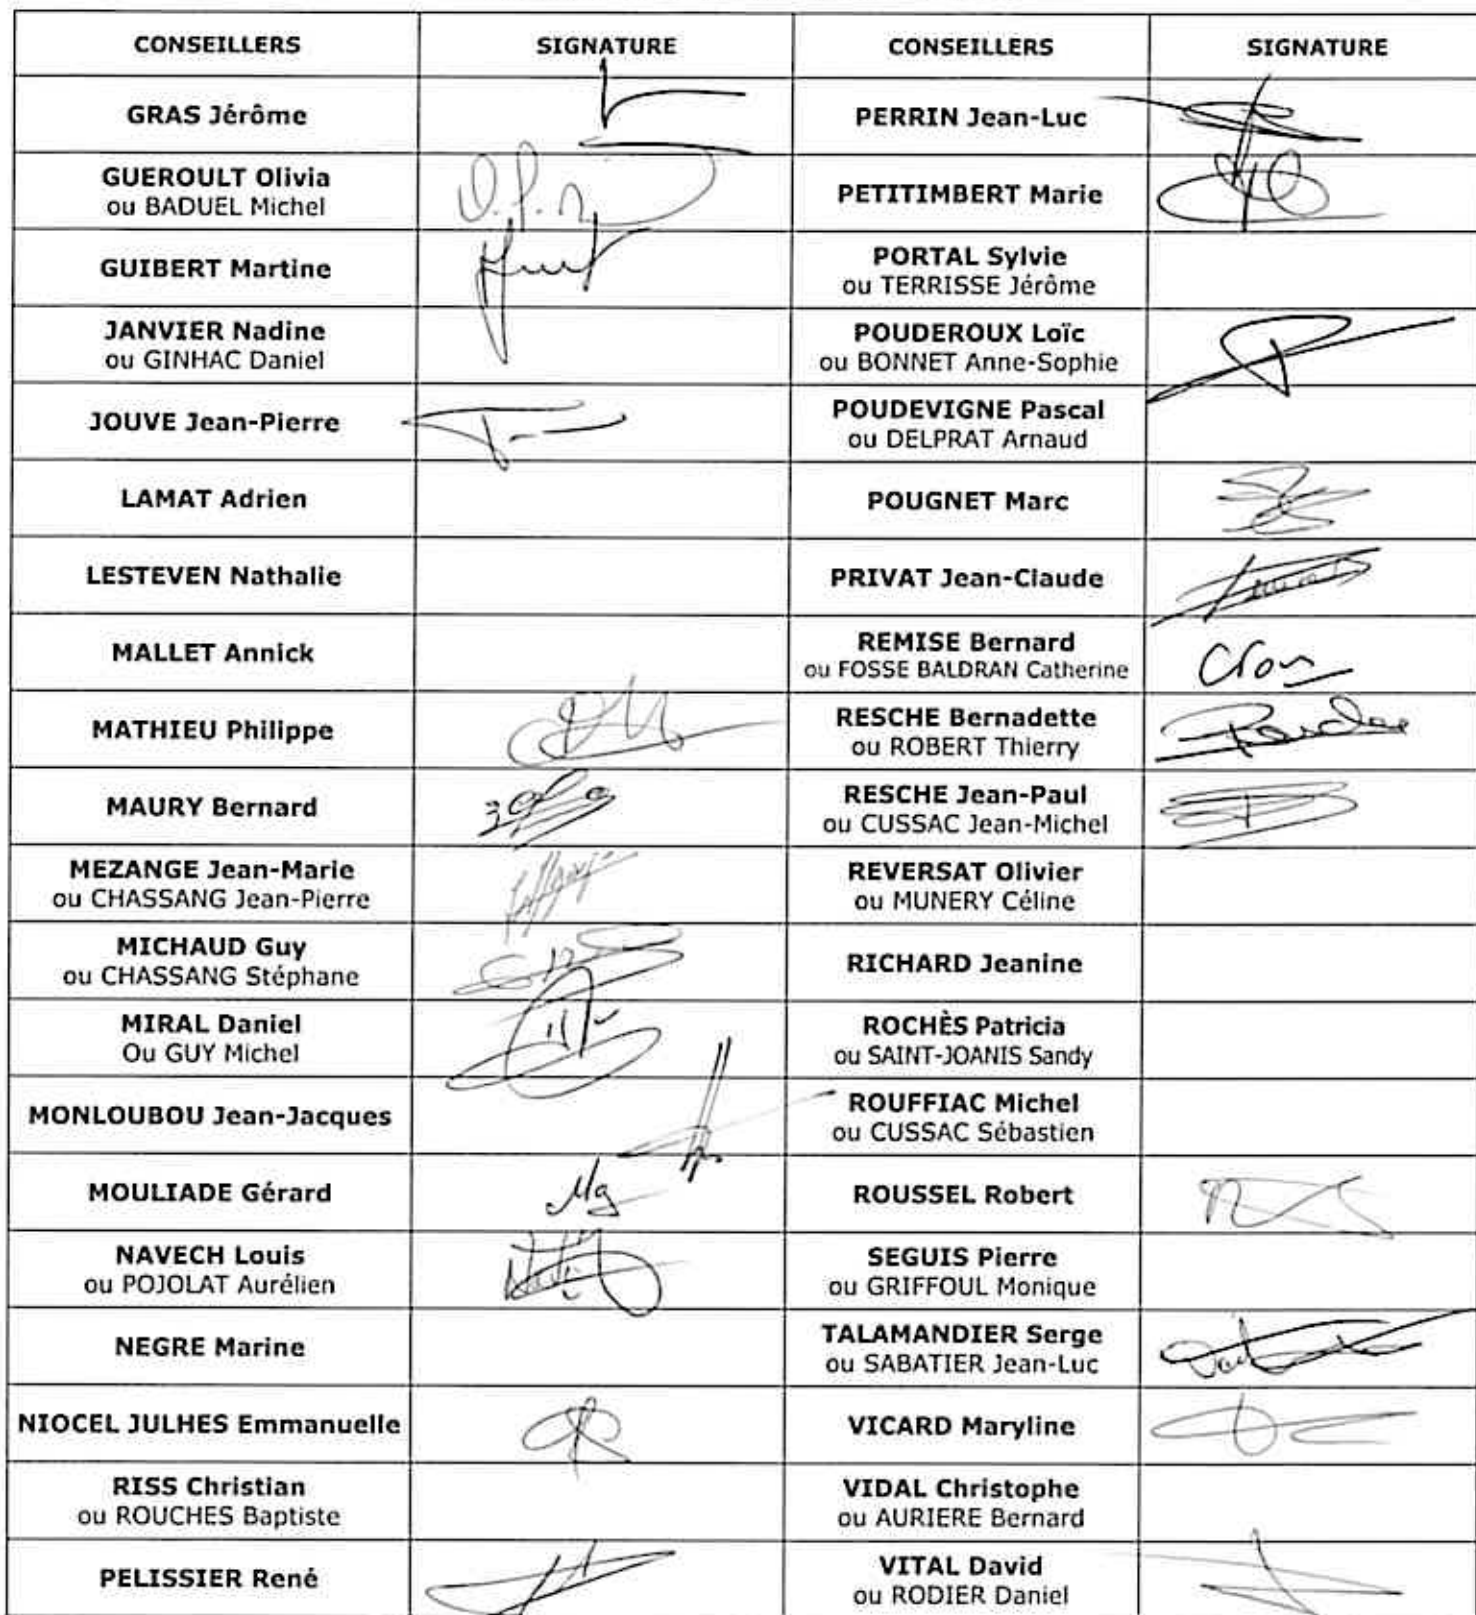 CONSEILLERS SIGNATURE CONSEILLERS SIGNATURE
GRAS Jérôme PERRIN Jean-Luc
GUEROULT Olivia
ou BADUEL Michel PETITIMBERT Marie
GUIBERT Martine PORTAL Sylvie
ou TERRISSE Jérôme
JANVIER Nadine
ou GINHAC Daniel POUDEROUX Loïc
ou BONNET Anne-Sophie
JOUVE Jean-Pierre POUDEVIGNE Pascal
ou DELPRAT Arnaud
LAMAT Adrien POUGNET Marc
LESTEVEN Nathalie PRIVAT Jean-Claude
MALLET Annick REMISE Bernard
ou FOSSE BALDRAN Catherine
MATHIEU Philippe RESCHE Bernadette
ou ROBERT Thierry
MAURY Bernard RESCHE Jean-Paul
ou CUSSAC Jean-Michel
MEZANGE Jean-Marie
ou CHASSANG Jean-Pierre REVERSAT Olivier
ou MUNERY Céline
MICHAUD Guy
ou CHASSANG Stéphane RICHARD Jeanine
MIRAL Daniel
Ou GUY Michel ROCHÈS Patricia
ou SAINT-JOANIS Sandy
MONLOUBOU Jean-Jacques ROUFFIAC Michel
ou CUSSAC Sébastien
MOULIADE Gérard Mg ROUSSEL Robert
NAVECH Louis
ou POJOLAT Aurélien SEGUIS Pierre
ou GRIFFOUL Monique
NEGRE Marine TALAMANDIER Serge
ou SABATIER Jean-Luc
NIOCEL JULHES Emmanuelle VICARD Maryline
RISS Christian
ou ROUCHES Baptiste VIDAL Christophe
ou AURIERE Bernard
PELISSIER René VITAL David
ou RODIER Daniel